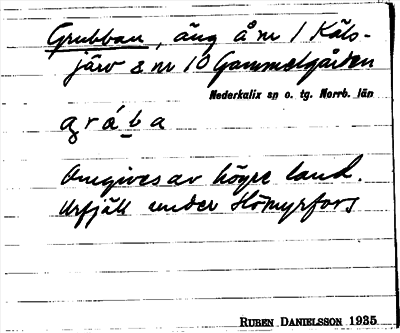 Grubban, äng å nr 1 Käls-
järv & nr 10 Gammelgården
Nederkalix sn o. tg. Norrb. län
Omgives av högre land.
Urfjäll under Hömyrfors
RUBEN DANIELSSON 1935